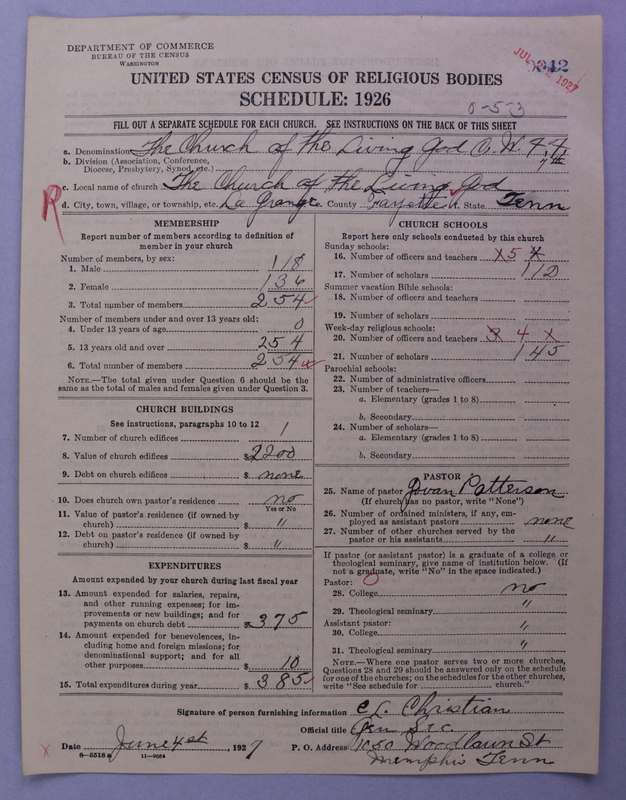 DEPARTMENT OF COMMERCE
BUREAU OF THE CENSUS
WASHINGTON
UNITED STATES CENSUS OF RELIGIOUS BODIES
SCHEDULE: 1926
0-5-3
FILL OUT A SEPARATE SCHEDULE FOR EACH CHURCH. SEE INSTRUCTIONS ON THE BACK OF THIS SHEET
a. Denomination The Church of the Living God C. W. F. F.
b. Division (Association, Conference,
Diocese, Presbytery, Synod, etc.)
c. Local name of church The Church of the Living God
d. City, town, village, or township, etc. La Grange County Fayette State Tenn
R
MEMBERSHIP
Report number of members according to definition of
member in your church
Number of members, by sex:
1. Male 118
2. Female 136
3. Total number of members 254
Number of members under and over 13 years old:
4. Under 13 years of age 0
5. 13 years old and over 254
6. Total number of members 254
NOTE.—The total given under Question 6 should be the
same as the total of males and females given under Question 3.
CHURCH BUILDINGS
See instructions, paragraphs 10 to 12
7. Number of church edifices 1
8. Value of church edifices $ 2200
9. Debt on church edifices $ none
10. Does church own pastor's residence no
Yes or No
11. Value of pastor's residence (if owned by
church) $ "
12. Debt on pastor's residence (if owned by
church) $ "
EXPENDITURES
Amount expended by your church during last fiscal year
13. Amount expended for salaries, repairs,
and other running expenses; for im-
provements or new buildings; and for
payments on church debt $ 375
14. Amount expended for benevolences, in-
cluding home and foreign missions; for
denominational support; and for all
other purposes $ 10
15. Total expenditures during year $ 385
CHURCH SCHOOLS
Report here only schools conducted by this church
Sunday schools:
16. Number of officers and teachers 5
17. Number of scholars 112
Summer vacation Bible schools:
18. Number of officers and teachers
19. Number of scholars
Week-day religious schools:
20. Number of officers and teachers 3 4 x
21. Number of scholars 145
Parochial schools:
22. Number of administrative officers
23. Number of teachers—
a. Elementary (grades 1 to 8)
b. Secondary
24. Number of scholars—
a. Elementary (grades 1 to 8)
b. Secondary
PASTOR
25. Name of pastor Patterson
(If church has no pastor, write "None")
26. Number of ordained ministers, if any, em-
ployed as assistant pastors none
27. Number of other churches served by the
pastor or his assistants "
If pastor (or assistant pastor) is a graduate of a college or
theological seminary, give name of institution below. (If
not a graduate, write "No" in the space indicated.)
Pastor:
28. College no
29. Theological seminary "
Assistant pastor:
30. College "
31. Theological seminary "
NOTE.—Where one pastor serves two or more churches,
Questions 28 and 29 should be answered only on the schedule
for one of the churches; on the schedules for the other churches,
write "See schedule for church."
Signature of person furnishing information C L. Christian
Official title Gen Sec.
Date June 4st, 1927 P. O. Address 1050 Woodlawn St
Memphis Tenn
8—5518 a 11—9054